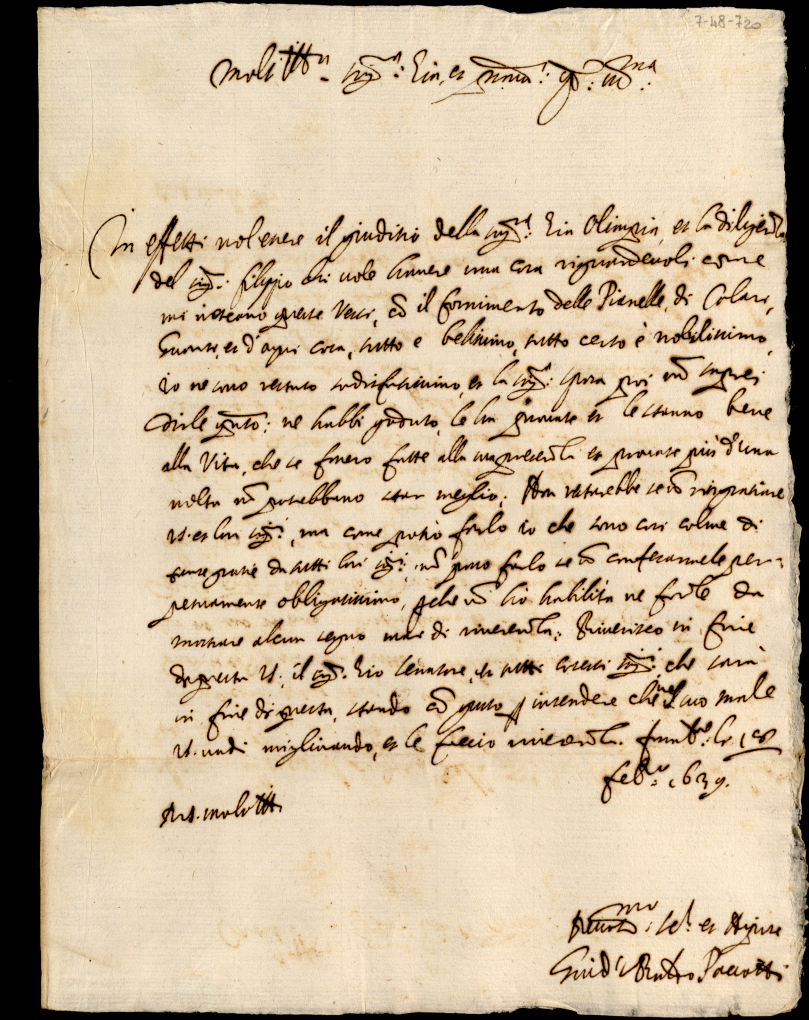 7-48-720
Molt Ill.re Sig.ra Zia, et
In effetti vol essere il giuditio della Sig.ra Zia Olimpia, et la diligenza
del Sig.r Filippo chi vole havere una cosa riguardevoli come
mi queste Vesti, cō il fornimento delle Pianelle, di Colari,
Guanti, et d'ogni cosa, tutto è belissimo, tutto certo è nobilissimo,
io ne sono restato sodisfatissimo, et la Sig.ra sposa poi nō saprei
dirle q.to ne habbi goduto, le ha provate et le stanno bene
alla Vita, che se fossero fatte alla sua presenza et provate più d'una
volta nō potrebbano star meglio; Hora restarebbe se nō ringratiare
VS. et lor Sig.ri, ma come potrò farlo io che sono cosi colmo di
tante gratie da tutti lor Sig.ri, nō posso farlo se nō confesarmele per-
petuamente obligatissimo, pche nō hò habilità ne forze da
mostrare alcun segno mai di riverenza; Riverisco in fine
da parte VS., il Sig.r Zio Senatore, et tutti cotesti Sig.ri, che sarà
in fine di questa, stando cō gusto p intendere che nel suo male
VS. vadi migliorando, et le faccio riverenza. le 18
Feb.ro 1639.
Di VS. molt Ill.re
Devot.mo Ser.re et Nipote